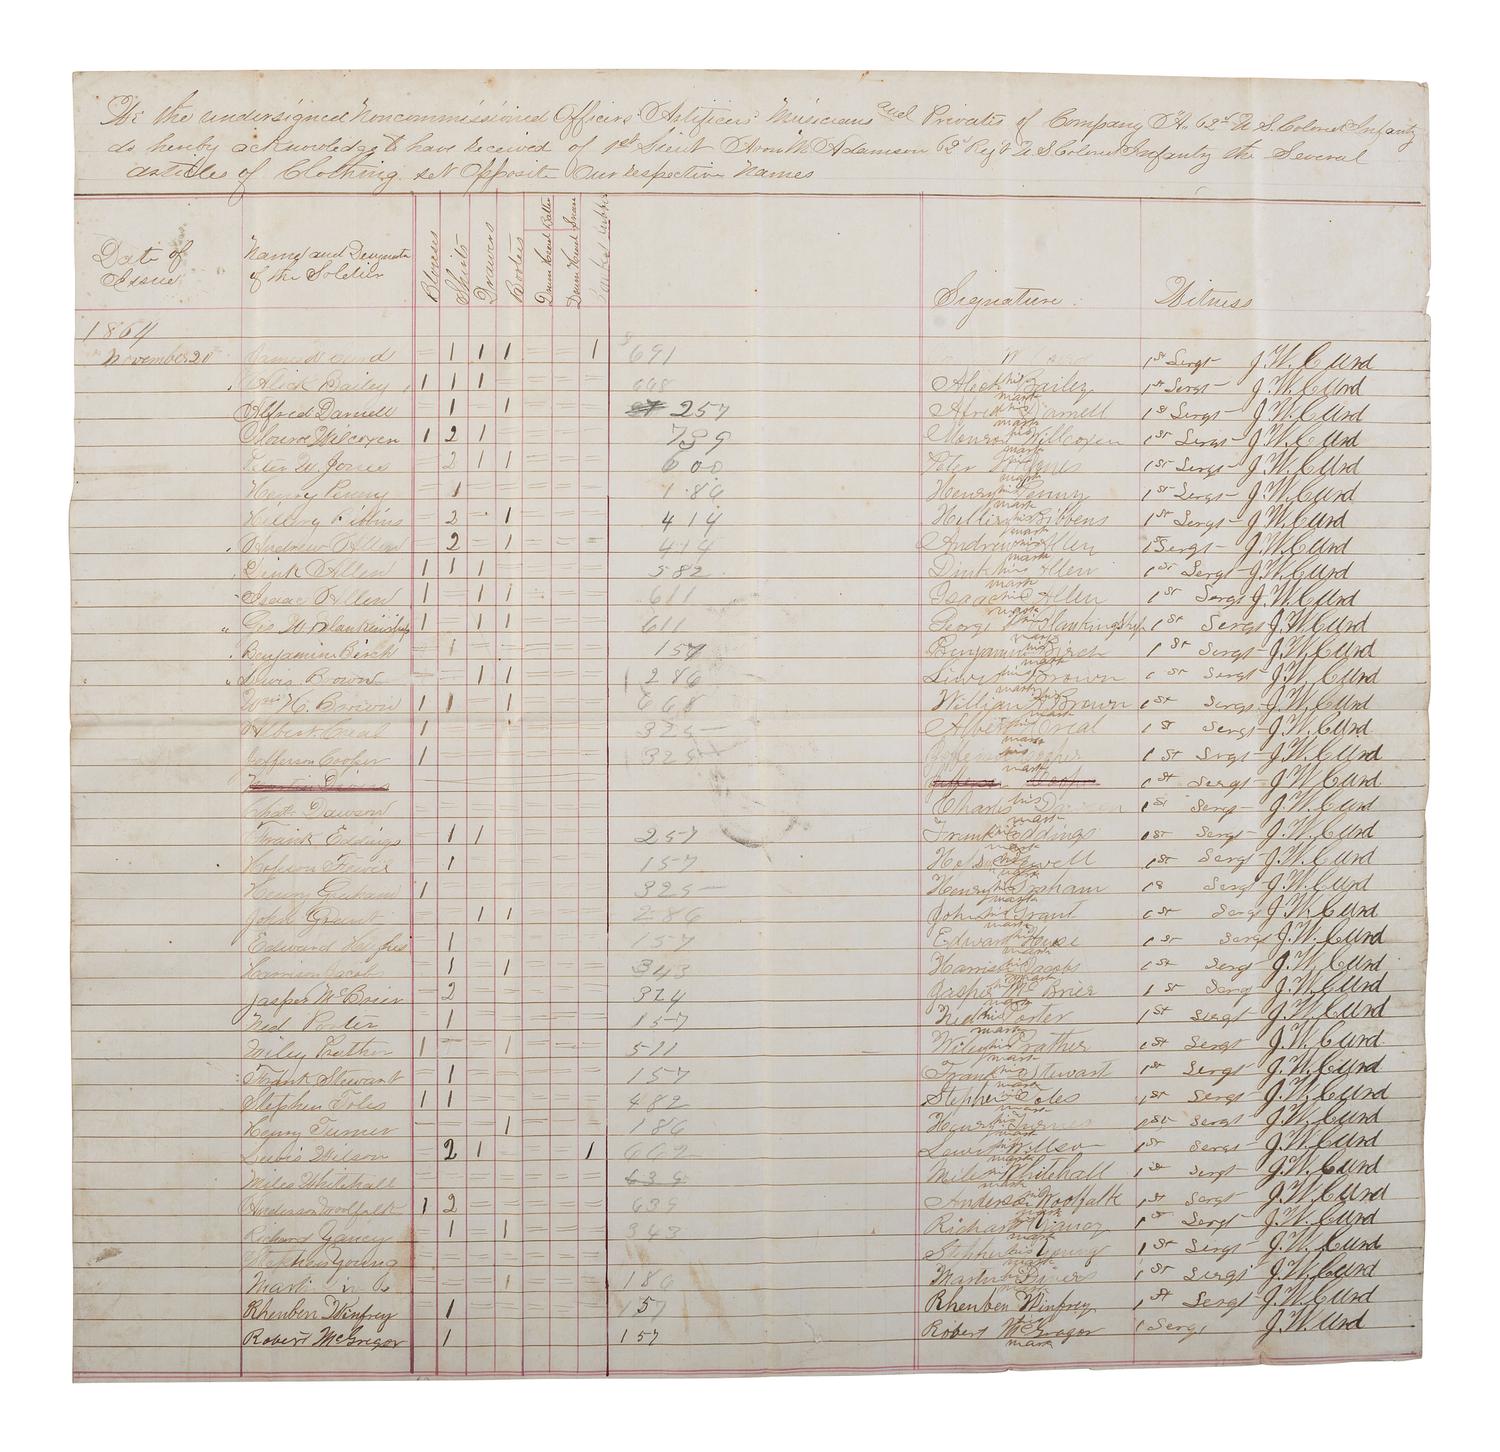 We the undersigned Noncommissioned Officers Artificers Musicians and Privates of Company A. 62d U S. Colored Infantry
do hereby acknowledge to have received of 1st Lieut Adamson 62d Regt U S Colored Infantry the Several
articles of Clothing set Opposite Our respective Names
Date of Issue Name and Designatn of the Soldier Blouses Shirts Drawers Bootees Signature Witness
1864
November 20 1 1 1 1 691 1st Sergt J. W. Curd
Alick Bailey 1 1 1 668 Alick his mark Bailey 1st Sergt J. W. Curd
Alfred Darnell 1 1 257 Alfred his mark Darnell 1st Sergt J. W. Curd
Monroe Wilcoxen 1 2 1 789 Monroe his mark Willcoxen 1st Sergt J. W. Curd
Peter W. Jones 2 1 1 600 Peter his mark Jones 1st Sergt J. W. Curd
Henry Penny 1 1.86 Henry his mark Penny 1st Sergt J. W. Curd
Hillry Bibbins 2 1 414 his mark Bibbens 1st Sergt J. W. Curd
Andrew Allen 2 1 414 Andrew his mark Allen 1st Sergt J. W. Curd
Dink Allen 1 1 1 582 Dink his mark Allen 1st Sergt J. W. Curd
Isaac Allen 1 1 1 611 Isaac his mark Allen 1st Sergt J. W. Curd
Geo W Blankinship 1 1 1 611 George his mark Blankingship 1st Sergt J. W. Curd
Benjamin Birch 1 157 Benjamin his mark Birch 1st Sergt J. W. Curd
Lewis Brown 1 1 286 Liwis his mark Brown 1st Sergt J. W. Curd
Wm H. Brown 1 1 1 668 William H his mark Brown 1st Sergt J. W. Curd
Albert Creal 1 325 Albert his mark Creal 1st Sergt J. W. Curd
Jefferson Cooper 1 325 his mark 1st Sergt J. W. Curd
Martin Divers 1st Sergt J. W. Curd
Chas. Dawson Charles his mark Dawson 1st Sergt J. W. Curd
Frank Eddings 1 1 257 Frank his mark Eddings 1st Sergt J. W. Curd
1 157 1st Sergt J. W. Curd
Henry Graham 1 325 Henry his mark Graham 1st Sergt J. W. Curd
John Grant 1 1 286 John his mark Grant 1st Sergt J. W. Curd
Edward Hughes 1 157 Edward his mark 1st Sergt J. W. Curd
Harrison Jacobs 1 1 343 Harrison his mark Jacobs 1st Sergt J. W. Curd
Jasper McBrier 2 314 Jasper his mark McBrier 1st Sergt J. W. Curd
Ned Porter 1 157 Ned his mark Porter 1st Sergt J. W. Curd
Wiley Prather 1 1 511 Wiley his mark Prather 1st Sergt J. W. Curd
Frank Stewart 1 157 Frank his mark Stewart 1st Sergt J. W. Curd
Stephen Toles 1 1 482 Stephen his mark Toles 1st Sergt J. W. Curd
Henry Turner 1 186 Henry his mark Turner 1st Sergt J. W. Curd
Lewis Wilson 2 1 1 662 Lewis his mark Willson 1st Sergt J. W. Curd
Miles Whitehall 639 Miles his mark Whitehall 1st Sergt J. W. Curd
Anderson Woolfalk 1 2 639 Anderson his mark Woofalk 1st Sergt J. W. Curd
Richard Yancy 1 1 343 Richard his mark Yancy 1st Sergt J. W. Curd
Stephen Young Stephen his mark Young 1st Sergt J. W. Curd
Martin 1 186 Martin his mark Divers 1st Sergt J. W. Curd
Rheuben Winfrey 1 157 Rheuben Winfrey 1st Sergt J. W. Curd
Robert McGregor 1 157 Robert his mark McGregor 1 Sergt J. W. Curd